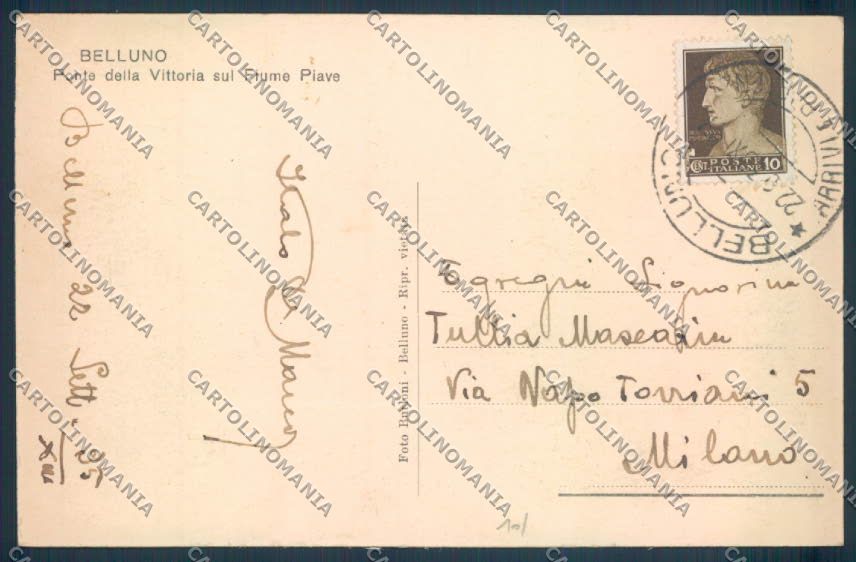 BELLUNO
Ponte della Vittoria sul Fiume Piave
Belluno 22 Sett. 35
XIII
Italo De Marco
Foto Burloni - Belluno - Ripr. vietata
POSTE
ITALIANE
CENT. 10
BELLUNO
ARRIVI E P
22
Egregia Signorina
Tullia
Via Napo Torriani 5
Milano
10/
CARTOLINOMANIA